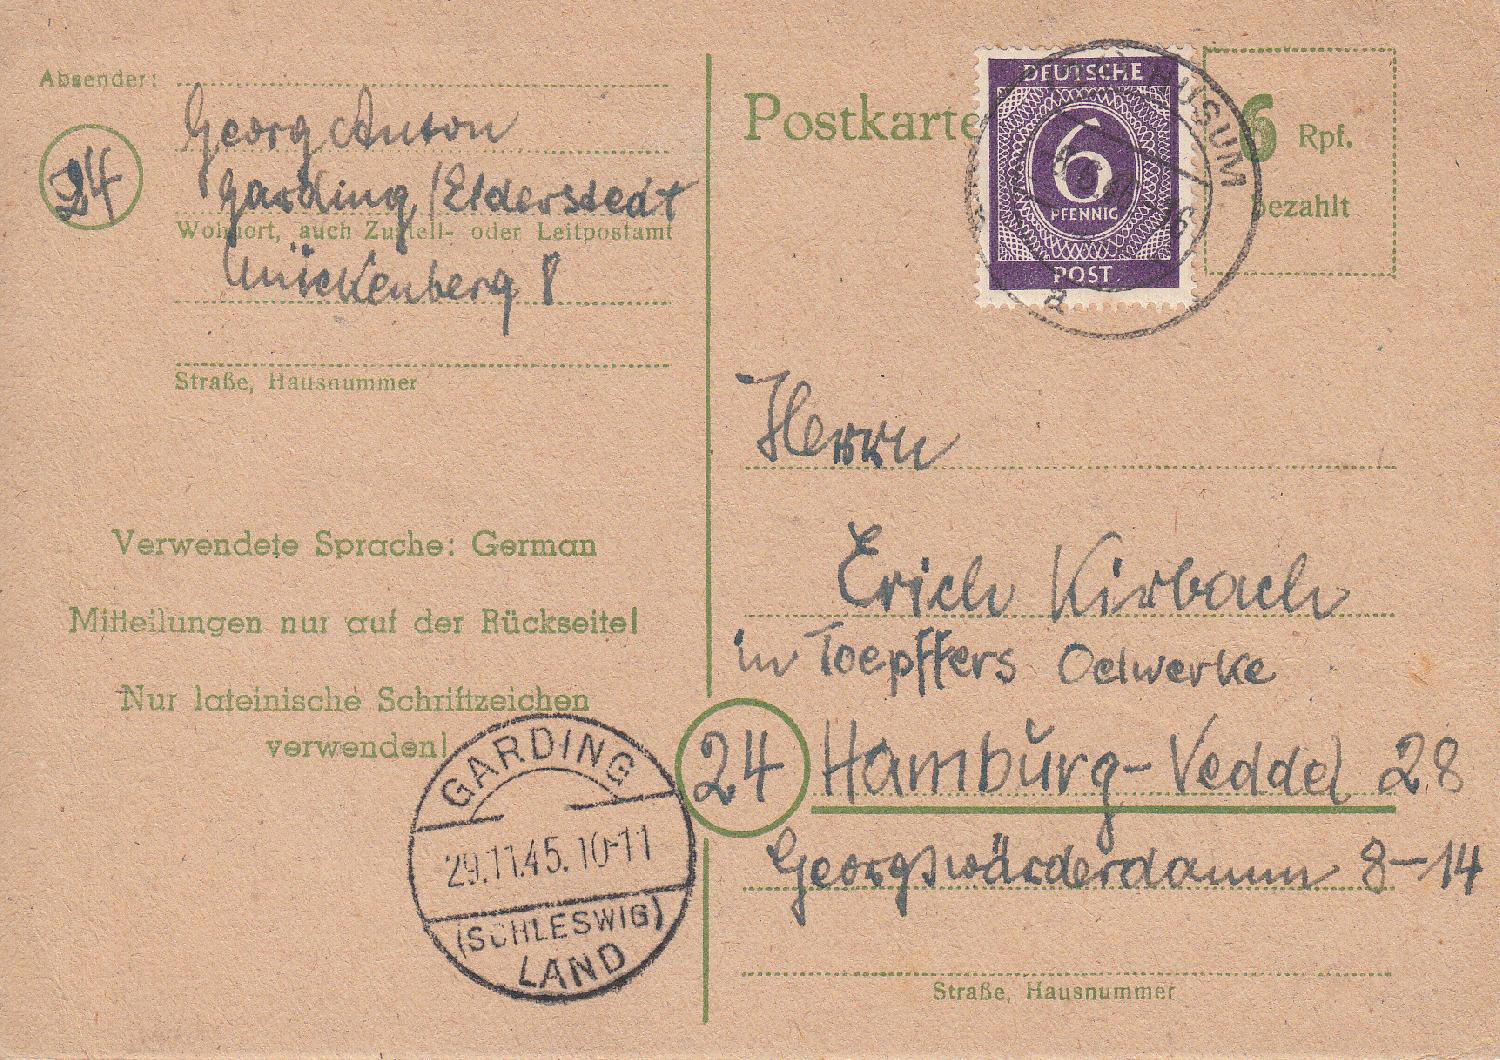 Absender:
Georg Anton
24
Garding/Eiderstedt
Wohnort, auch Zustell- oder Leitpostamt
8
Straße, Hausnummer
Verwendete Sprache: German
Mitteilungen nur auf der Rückseite!
Nur lateinische Schriftzeichen
verwenden!
GARDING
29.11.45.10-11
(SCHLESWIG)
LAND
Postkarte
DEUTSCHE
6
PFENNIG
POST
HUSUM
a
6 Rpf.
bezahlt
Herrn
Erich Kirbach
in Toepffers Oelwerke
24 Hamburg-Veddel 28
Georgswärderdamm 8-14
Straße, Hausnummer